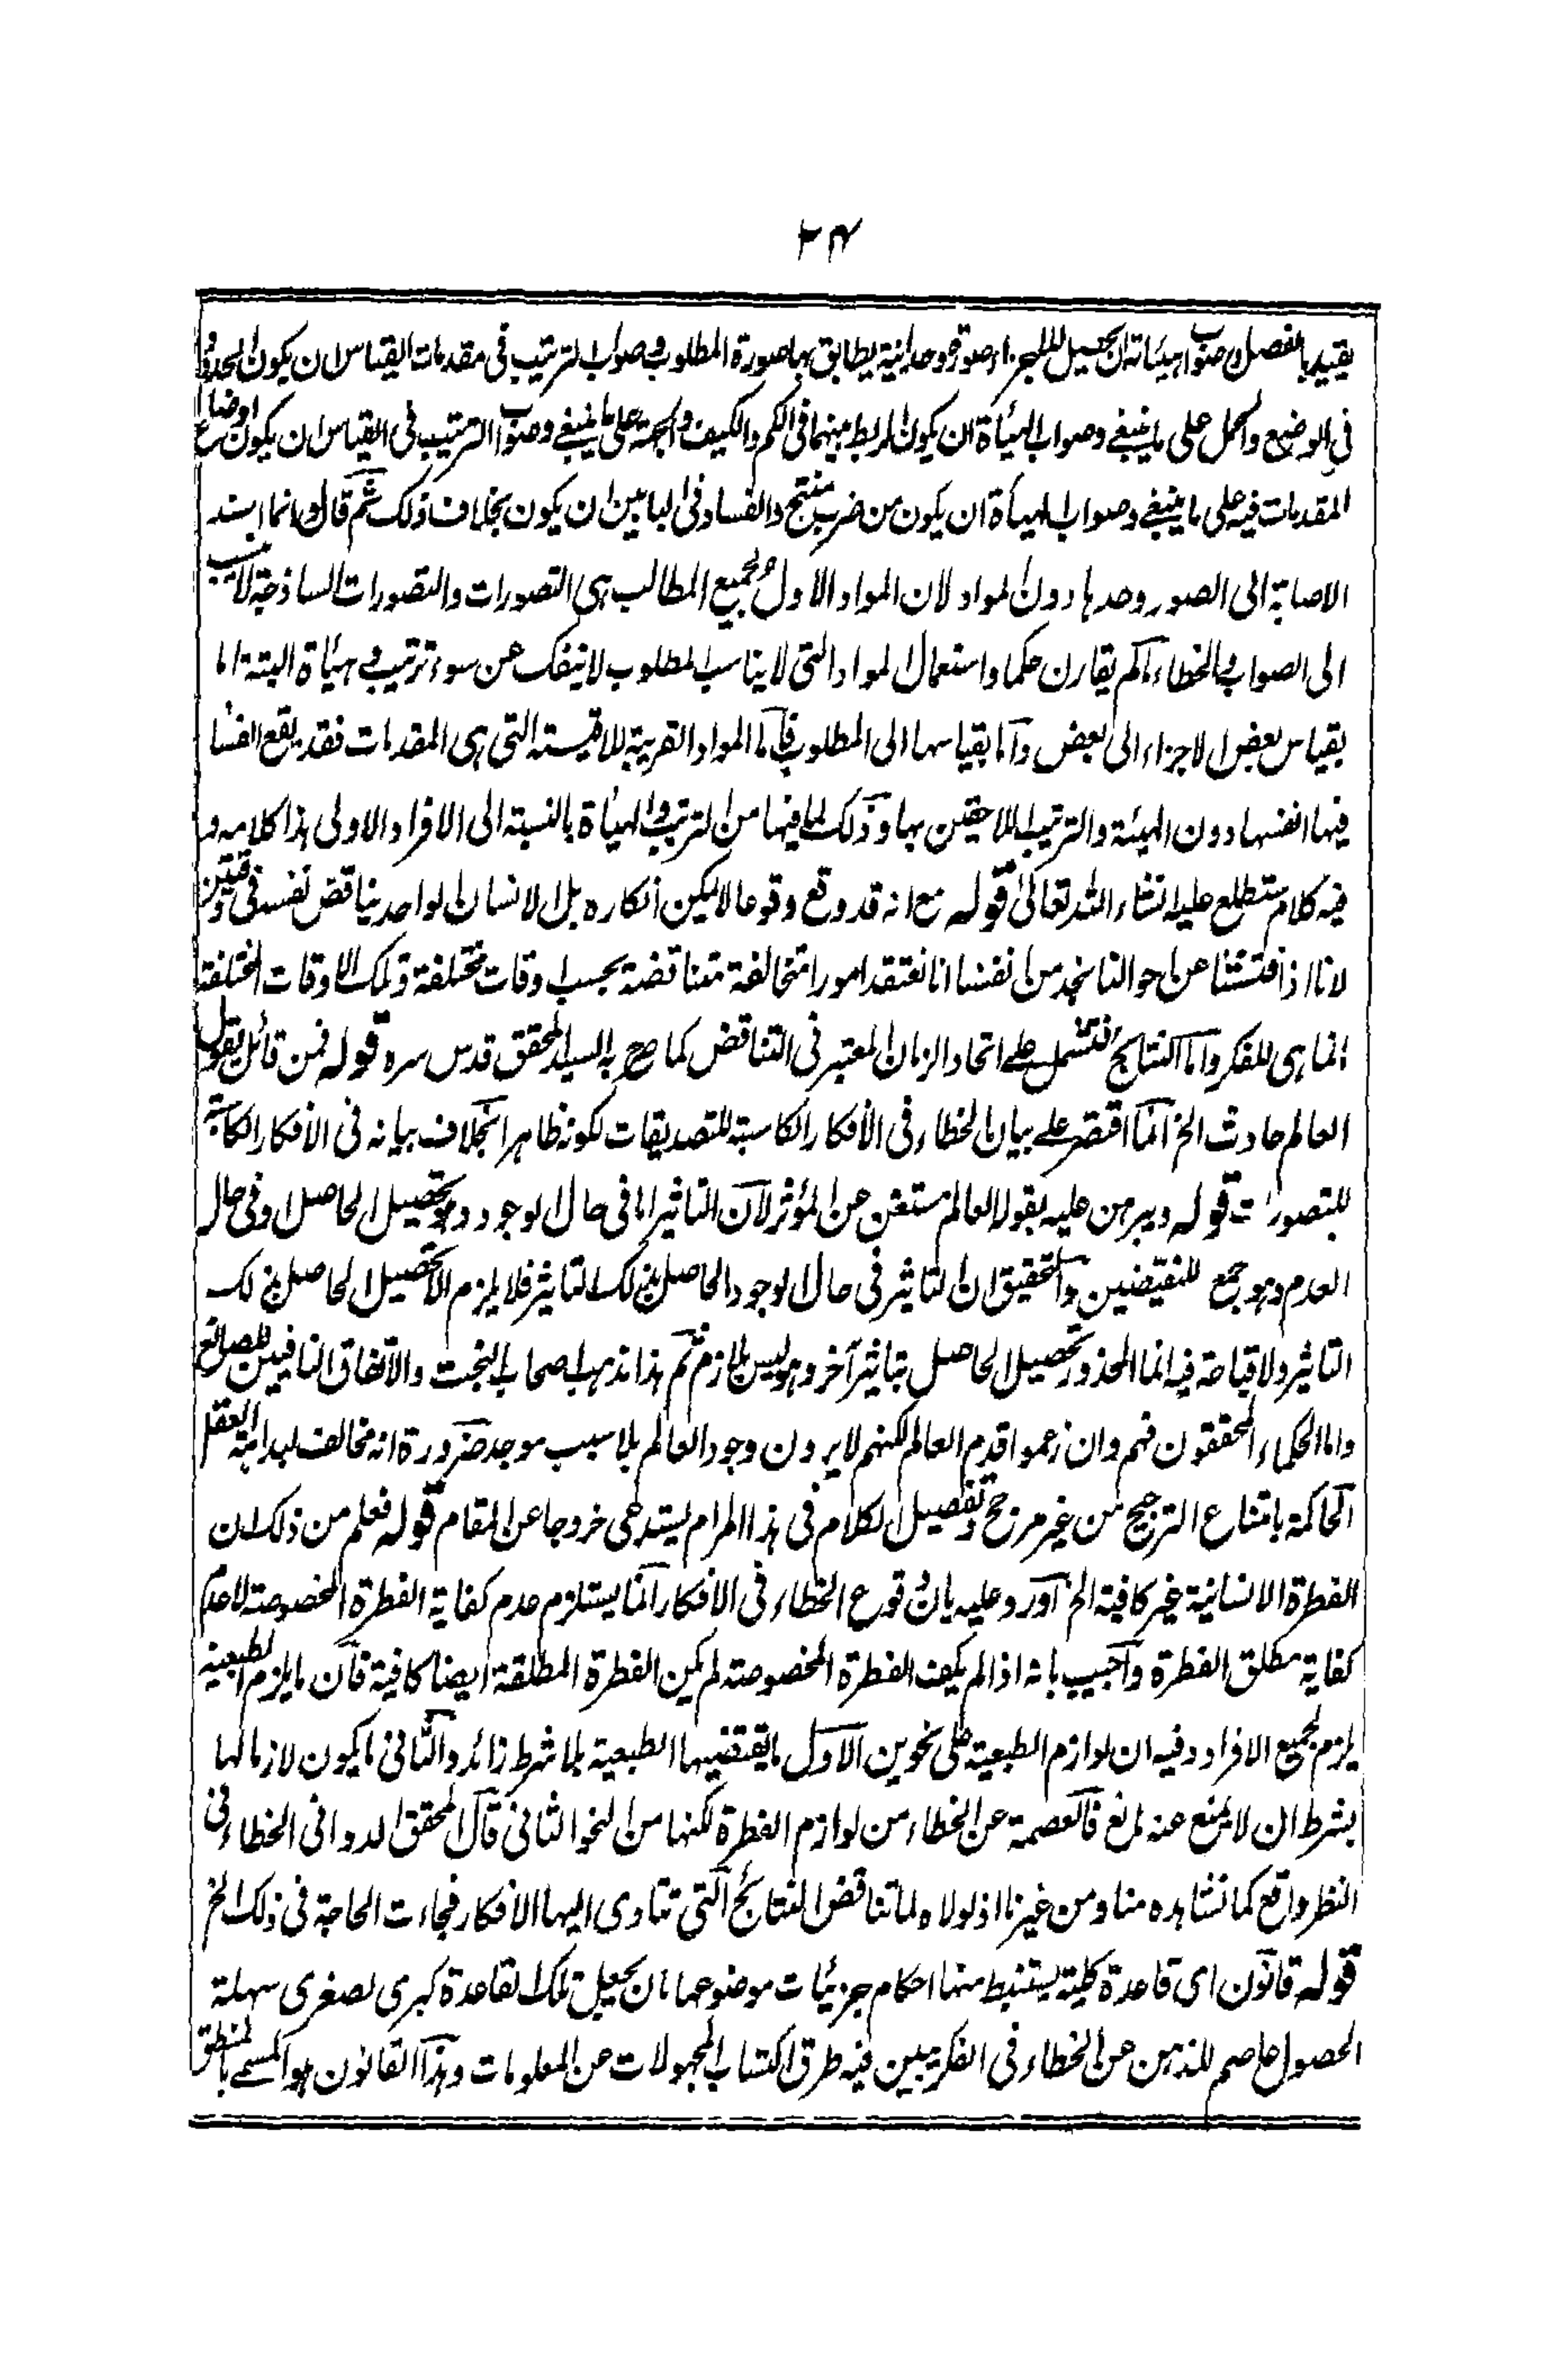 ٢٤
يقيد بالفصل وصواب هيئاته ان يحصل للاجزاء صورة وحدانية يطابق بها صورة المطلوب وصواب الترتيب فى مقدمات القياس ان يكون الحدود
فى الوضع والحمل على ما ينبغى وصواب الهيأة ان يكون الربط بينهما فى الكم والكيف والجهة على ما ينبغى وصواب الترتيب فى القياس ان يكون اوضاع
المقدمات فيه على ما ينبغى وصواب الهيأة ان يكون من ضرب منتج والفساد فى البابين ان يكون بخلاف ذلك ثم قال وانما اسند
الاصابة الى الصور وحدها دون المواد لان المواد الاول لجميع المطالب هى التصورات والتصورات الساذجة لا تنسب
الى الصواب والخطاء ما لم يقارن حكما واستعمال المواد التى لا يناسب المطلوب لا ينفك عن سوء ترتيب وهيأة البتة اما
بقياس بعض الاجزاء الى بعض واما بقياسها الى المطلوب فاما المواد القريبة للاقيسة التى هى المقدمات فقد يقع الفساد
فيها انفسها دون الهيئة والترتيب اللاحقين بها وذلك لما فيها من الترتيب والهيأة بالنسبة الى الافراد الاولى هذا كلامه و
فيه كلام ستطلع عليه انشاء الله تعالى قوله مع انه قد وقع وقوعا لا يمكن انكاره بل الانسان الواحد يناقض نفسه فى وقتين
لانا اذا فتشنا عن احوالنا نجد من انفسنا انا نعتقد امورا متخالفة متناقضة بحسب اوقات مختلفة وتلك الاوقات المختلفة
انما هى للفكر واما النتائج فتشتمل على اتحاد الزمان المعتبر فى التناقض كما صرح به السيد المحقق قدس سره قوله فمن قائل يقول
العالم حادث الخ انما اقتصر على بيان الخطاء فى الافكار الكاسبة للتصديقات لكونه ظاهرا بخلاف بيانه فى الافكار الكاسبة
للتصورات قوله ويبرهن عليه بقوله العالم مستغن عن المؤثر لان التاثير اما فى حال الوجود وهو تحصيل الحاصل او فى حال
العدم وهو جمع للنقيضين والتحقيق ان التاثير فى حال الوجود الحاصل بذلك التاثير فلا يلزم الا تحصيل الحاصل بذلك
التاثير ولا قباحة فيه انما المحذور تحصيل الحاصل بتاثير آخر وهو ليس بلازم ثم هذا مذهب اصحاب البخت والاتفاق النافيين للصانع
واما الحكماء المحققون فهم وان زعموا قدم العالم لكنهم لا يرون وجود العالم بلا سبب موجد ضرورة انه مخالف لبداهة العقل
الحاكمة بامتناع الترجيح من غير مرجح وتفصيل الكلام فى هذا المرام يستدعى خروجا عن المقام قوله فعلم من ذلك ان
الفطرة الانسانية غير كافية الخ اورد عليه بان وقوع الخطاء فى الافكار انما يستلزم عدم كفاية الفطرة المخصوصة لا عدم
كفاية مطلق الفطرة واجيب بانه اذا لم يكف الفطرة المخصوصة لم يكن الفطرة المطلقة ايضا كافية فان ما يلزم الطبعية
يلزم لجميع الافراد وفيه ان لوازم الطبعية على نحوين الاول ما يقتضيها الطبعية بلا شرط زائد والثانى ما يكون لازما لها
بشرط ان لا يمنع عنه مانع فالعصمة عن الخطاء من لوازم الفطرة لكنها من النحو الثانى قال المحقق الدوانى الخطاء فى
النظر واقع كما نشاهده منا ومن غيرنا اذ لولاه لما تناقض النتائج التى تتادى اليها الافكار فجاءت الحاجة فى ذلك الخ
قوله قانون اى قاعدة كلية يستنبط منها احكام جزئيات موضوعها بان يجعل تلك القاعدة كبرى لصغرى سهلة
الحصول عاصم للذهن عن الخطاء فى الفكر يبين فيه طرق اكتساب المجهولات عن المعلومات وهذا القانون هو المسمى بالمنطق